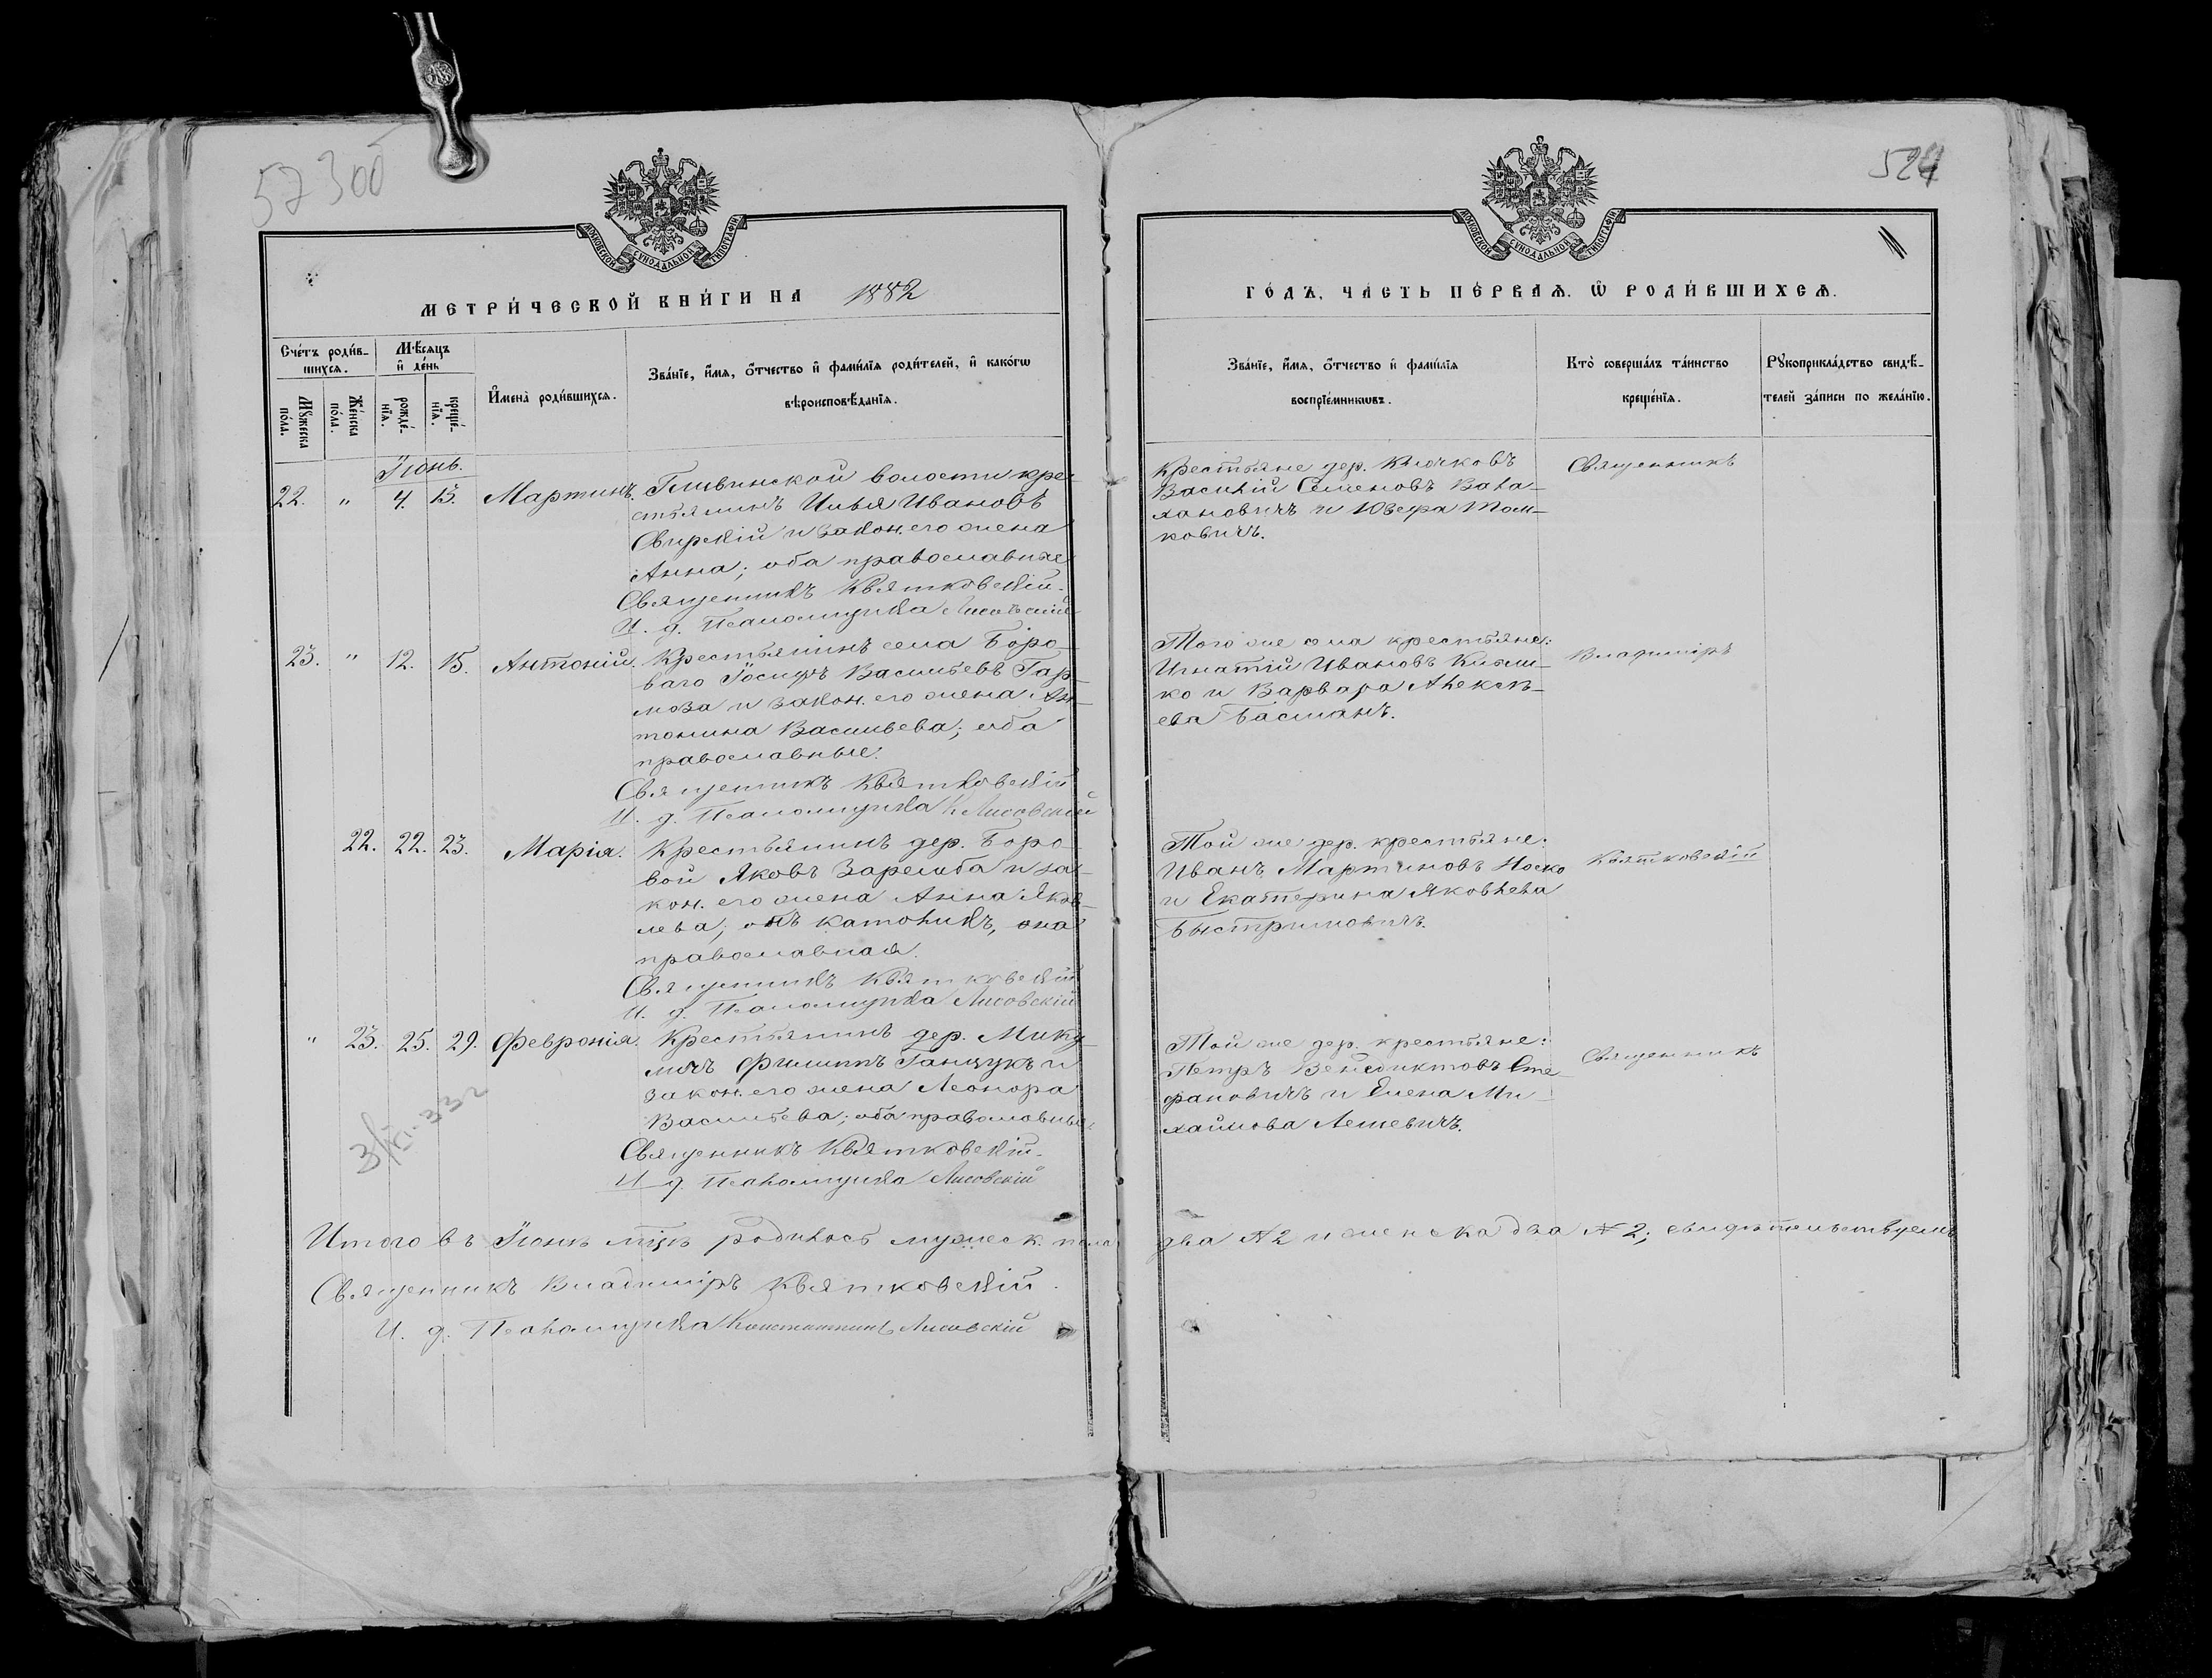 57300
МОСКОВСКОЙ СѴНОДАЛЬНОЙ ТИПОГРАФІИ
МЕТРИ́ЧЕСКОЙ КНИ́ГИ НА 1882
Сче́тъ роди́в-
шихсѧ.
Мꙋ́жеска по́ла.
Же́нска по́ла.
Мѣ́сѧцъ и҆ де́нь
рожде́-нїѧ.
креще́-нїѧ.
И҆мена̀ роди́вшихсѧ.
Зва́нїе, и҆́мѧ, ѻ҆́тчество и҆ фами́лїѧ роди́телей, и҆ како́гѡ
вѣроисповѣ́данїѧ.
Іюнь.
22. " 4. 13. Мартинъ. Гливинской волости кре-
стьянинъ Илья Ивановъ
Свирскій и закон. его жена
Анна; оба православные
Священникъ Квятковскій.
И. д. Псаломщика Лисовскій
23. " 12. 15. Антоній. Крестьянинъ села Боро-
ваго Іосифъ Васильевъ Гар-
моза и закон. его жена Ан-
тонина Васильева; оба
православные.
Священникъ Квятковскій
И. д. Псаломщика К Лисовскій
22. 22. 23. Марія. Крестьянинъ дер. Боро-
вой Яковъ Заремба и за-
кон. его жена Анна Яков-
лева; онъ католикъ, она
православная.
Священникъ Квятковскій
И. д. Псаломщика Лисовскій
" 23. 25. 29. Февронія. Крестьянинъ дер. Мику-
личъ Филиппъ Ганцукъ и
закон. его жена Леонора
Васильева; оба православные
Священникъ Квятковскій.
И. д. Псаломщика Лисовскій
Итого въ Іюнѣ мцѣ родилось мужеск. пола
Священникъ Владиміръ Квятковскій.
И. д. Псаломщика Константинъ Лисовскій
МОСКОВСКОЙ СѴНОДАЛЬНОЙ ТИПОГРАФІИ
ГО́ДЪ, ЧА́СТЬ ПЕ́РВАѦ, Ѡ҆ РОДИ́ВШИХСѦ.
Зва́нїе, и҆́мѧ, ѻ҆́тчество и҆ фами́лїѧ
воспрїе́мникѡвъ.
Кто̀ соверша́лъ та́инство
креще́нїѧ.
Рꙋкоприкла́дство свидѣ́-
телей за́писи по жела́нїю.
Крестьяне дер. Клочковъ
Василій Семеновъ Вала-
хановичъ и Юзефа Том-
ковичъ.
Священникъ
Того же села крестьяне:
Игнатій Ивановъ
ко и Варвара Алексѣ-
ева Басманъ.
Владиміръ
Той же дер. крестьяне:
Иванъ Мартиновъ Носко
и Екатерина Яковлева
Быстримовичъ.
Квятковскій
Той же дер. крестьяне:
Петръ Венедиктовъ Сте-
фановичъ и Елена Ми-
хайлова Лешевичъ.
Священникъ
два №2 и женска два №2; свидѣтельствуемъ